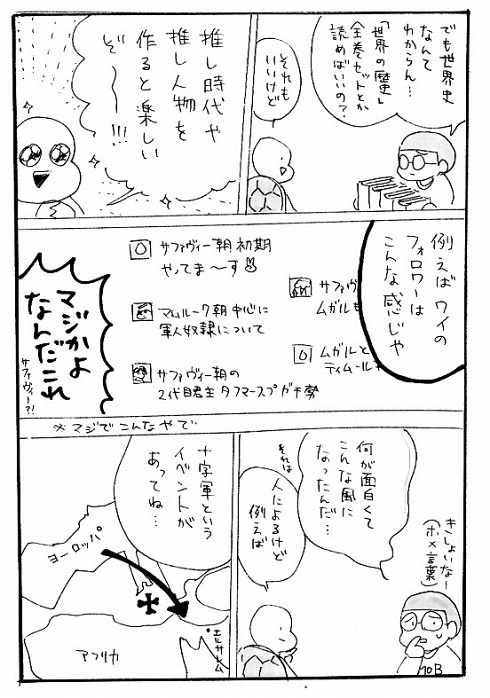 でも世界史
なんて
わからん…
「世界の歴史」
全巻セットとか
読めばいいの?
それも
いいけど
推し時代や
推し人物を
作ると楽しい
ぞ〜〜!!!
例えばワイの
フォロワーは
こんな感じや
サファヴィー朝初期
やってま〜す
マムルーク朝中心に
軍人奴隷について
サファヴィー朝の
2代目君主タフマースプガチ勢
サファヴ
ムガルも
ムガルと
ティムール
マジかよ
なんだこれ
サファヴィー?!
※マジでこんなやで
何が面白くて
こんな風に
なったんだ…
きしょいなー
(ホメ言葉)
それは
人によるけど
例えば
十字軍という
イベントが
あってね…
ヨーロッパ
エルサレム
アフリカ